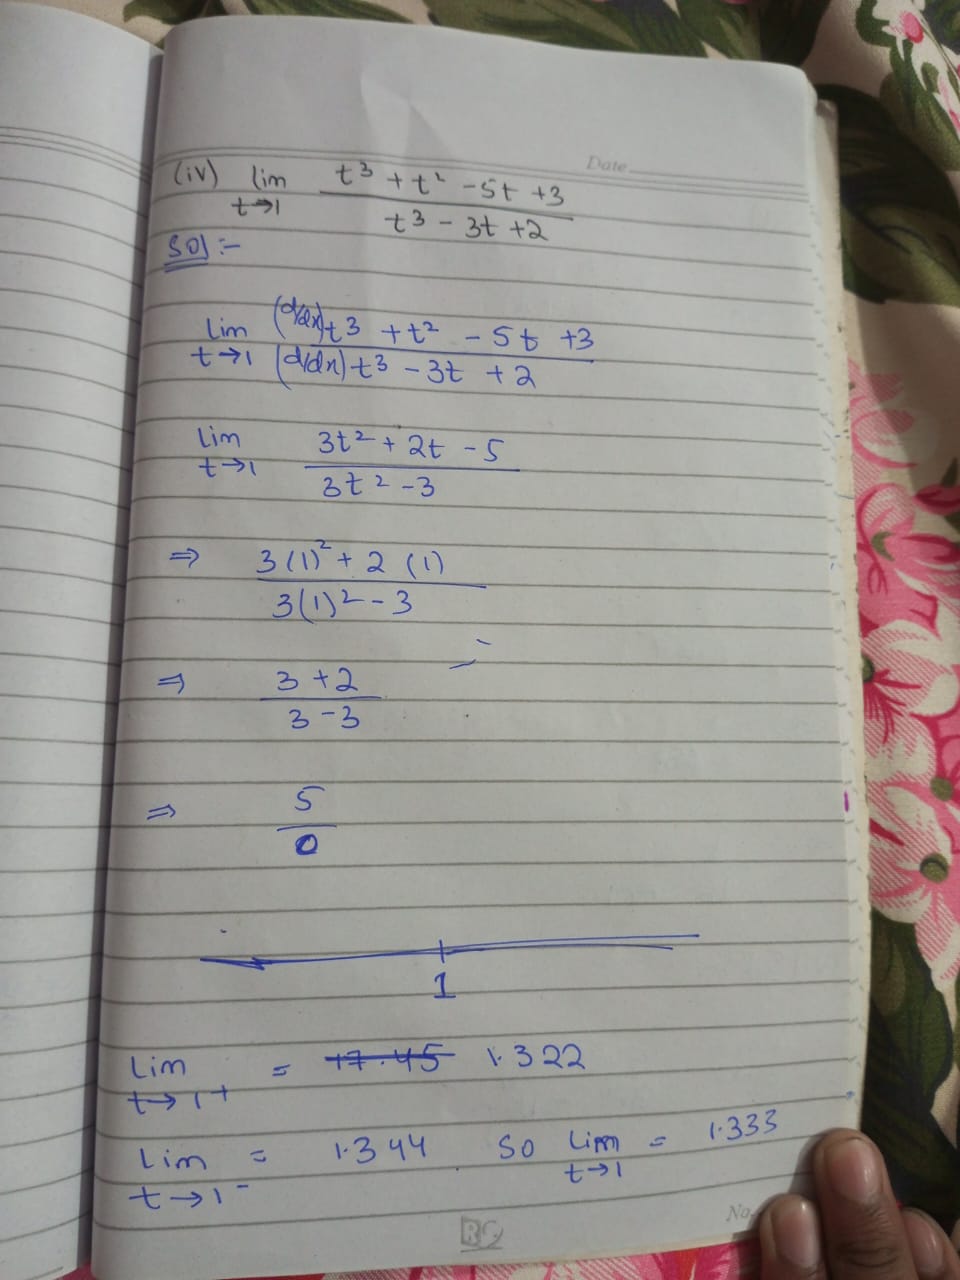 Date
(iv) lim t→1 t³ + t² - 5t + 3
t³ - 3t + 2
Sol :-
lim t→1 (d/dx) t³ + t² - 5t + 3
(d/dx) t³ - 3t + 2
lim t→1 3t² + 2t - 5
3t² - 3
⇒ 3(1)² + 2 (1)
3(1)² - 3
⇒ 3 + 2
3 - 3
⇒ 5
0
1
lim t→1+ = 1.322
lim t→1- = 1.344 so lim t→1 = 1.333
No.